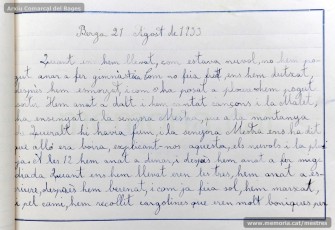 Arxiu Comarcal del Bages
Berga 21 Agost de 1933
Quant ens hem llevat, com estava nuvol, no hem po-
gut anar a fer gimnàstica. Com no feia fret ens hem dutxat,
després hem esmorzat, i com s'ha posat a ploure hem pogut
Hem anat a dalt i hem cantat cançons i la Mallet,
ha ensenyat a la senyora Mestra, que a la muntanya
de Queralt hi havia fum, i la senyora Mestra ens ha dit
que allò era boira, explicant-nos aquesta, els nuvols i la plu-
ja. A les 12 hem anat a dinar, i després hem anat a fer migdi-
ada. Quant ens hem llevat eren les tres, hem anat a es-
criure, després hem berenat, i com ja feia sol, hem marxat,
i pel camí, hem recollit cargolines que eren molt boniques per
www.memoria.cat/mestres